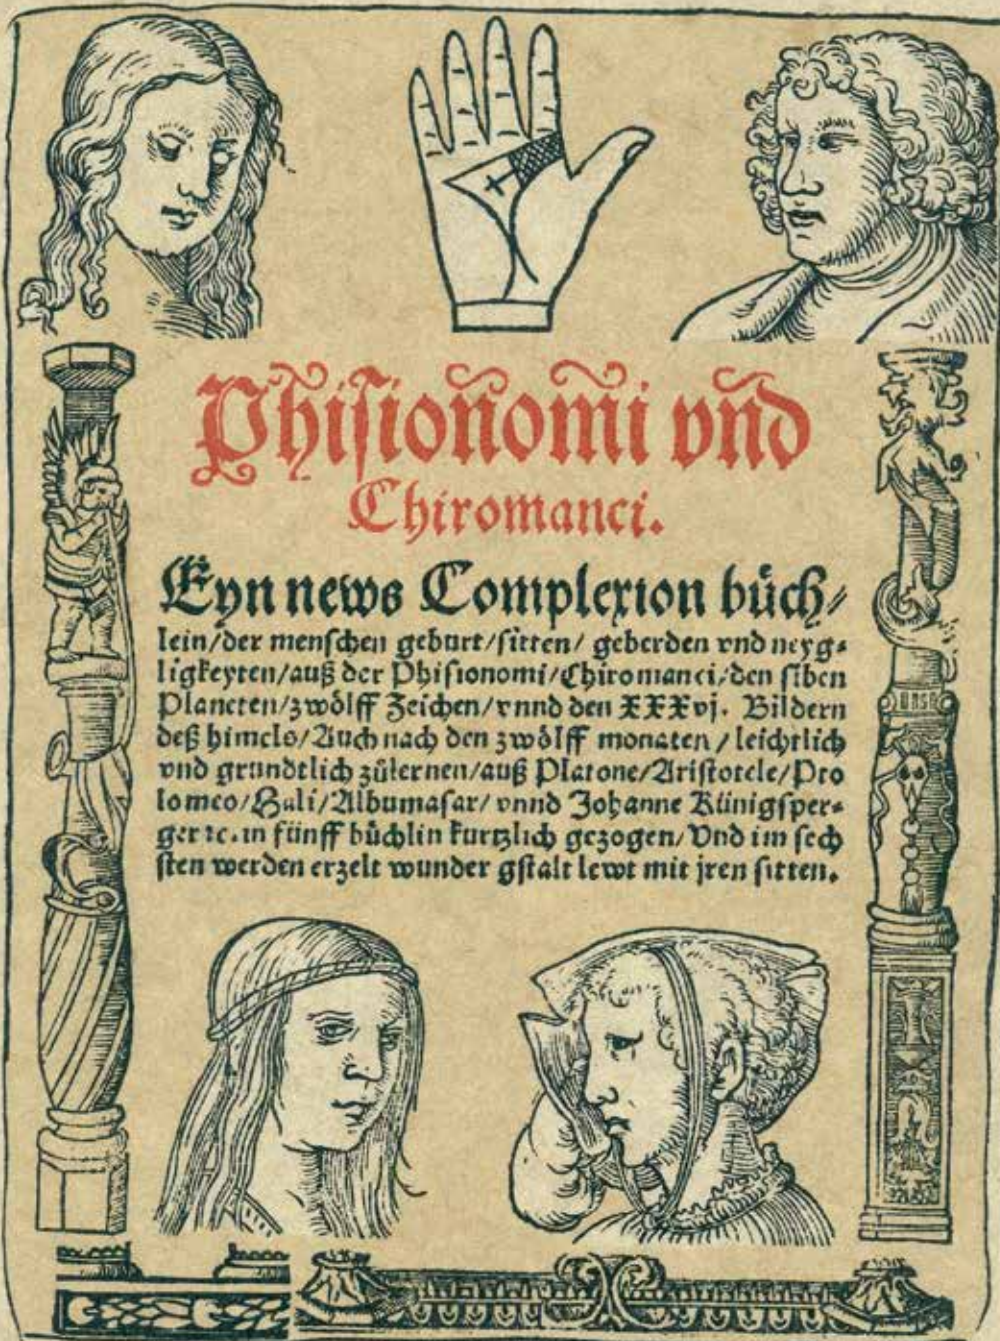 Phisioñomi vñd
Chiromanci.
Eyn news Complexion büch⸗
lein/der menschen geburt/sitten/ geberden vnd neyg⸗
ligkeyten/auß der Phisionomi/Chiromanci/den siben
Planeten/zwölff Zeichen/vnnd den XXXvj. Bildern
deß himels/Auch nach den zwölff monaten/ leichtlich
vnd gründtlich zůlernen/auß Platone/Aristotele/Pto
lomeo/Hali/Albumasar/ vnnd Johanne Künigsper⸗
ger ꝛc. in fünff büchlin kurtzlich gezogen/ Vnd im sech
sten werden erzelt wunder gstalt lewt mit jren sitten.